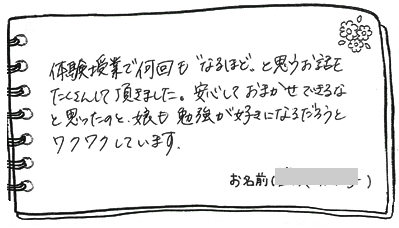 体験授業で何回も"なるほど"と思うお話を
たくさんして頂きました。安心しておまかせできるな
と思ったのと、娘も勉強が好きになるだろうと
ワクワクしています。
お名前(　　　)